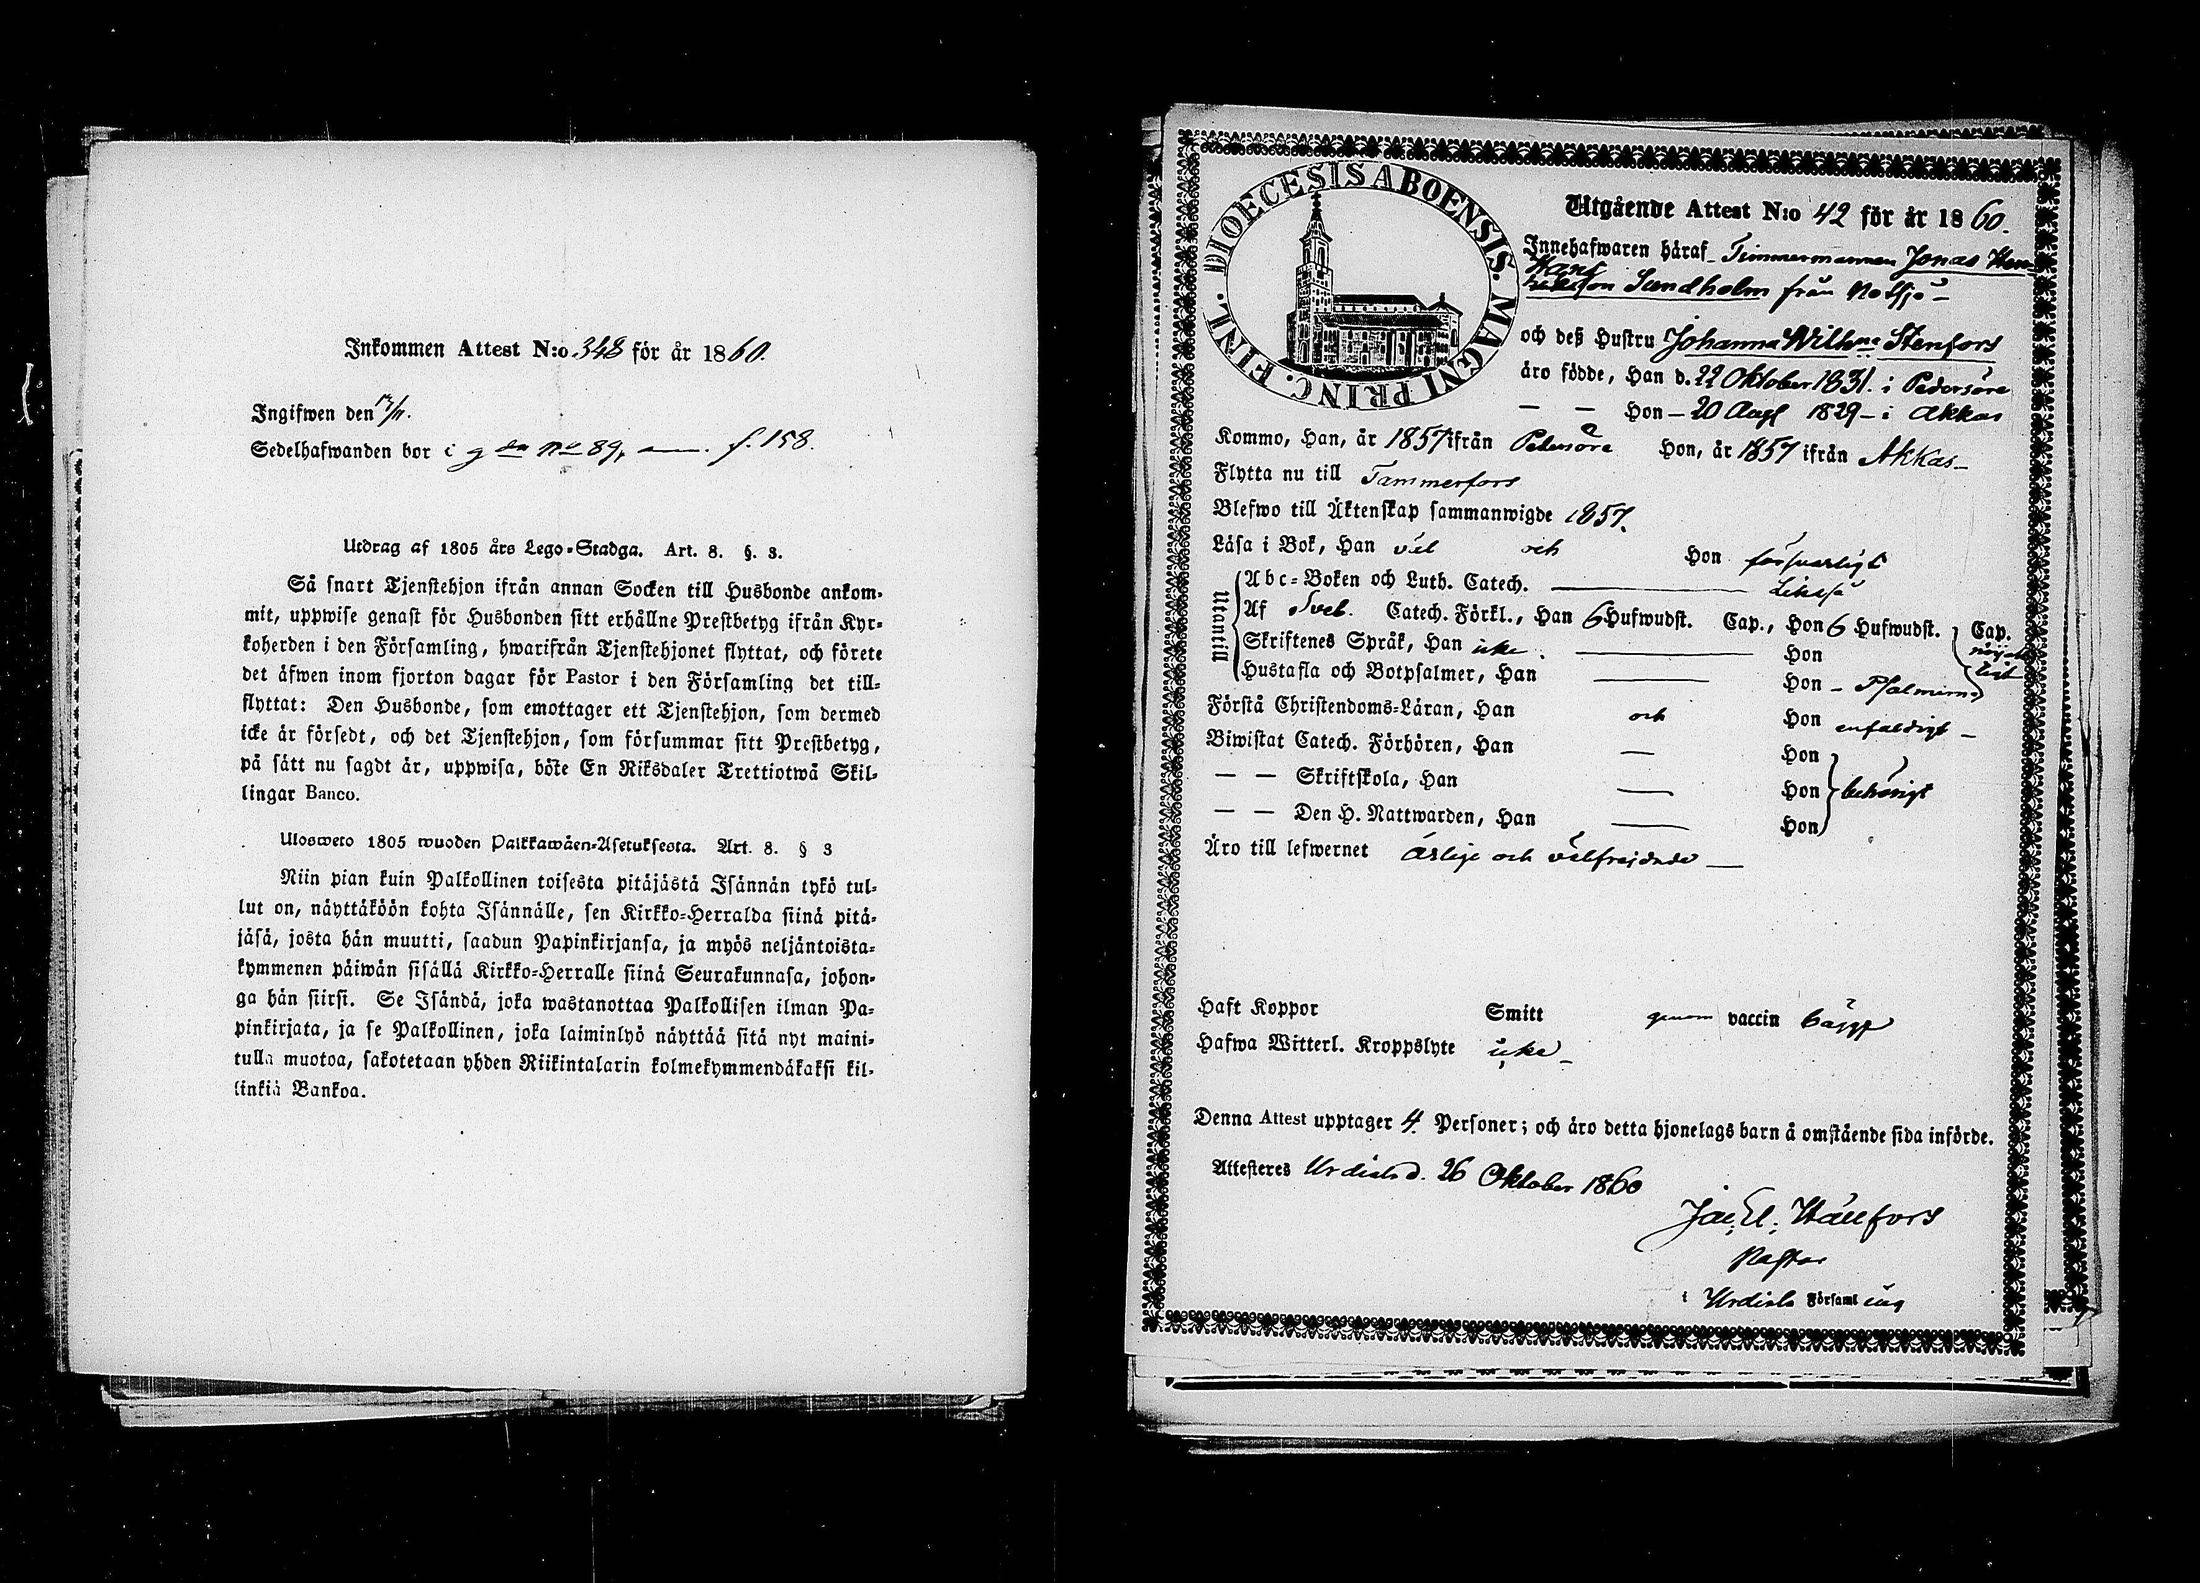 Inkommen Attest N:o 348 för år 1860.
Ingifwen den 17/11.
Sedelhafwanden bor i g da No 89, f. 158.
Utdrag af 1805 års Lego-Stadga. Art. 8. §. 3.
Så snart Tjenstehjon ifrån annan Socken till Husbonde ankom-
mit, uppwise genast för Husbonden sitt erhållne Prestbetyg ifrån Kyr-
koherden i den Församling, hwarifrån Tjenstehjonet flyttat, och förete
det äfwen inom fjorton dagar för Pastor i den Församling det till-
flyttat: Den Husbonde, som emottager ett Tjenstehjon, som dermed
icke är försedt, och det Tjenstehjon, som försummar sitt Prestbetyg,
på sätt nu sagdt är, uppwisa, böte En Riksdaler Trettiotwå Skil-
lingar Banco.
Ulosweto 1805 wuoden Palkkawäen-Asetuksesta. Art. 8. § 3
Niin pian kuin Palkollinen toisesta pitäjästä Isännän tykö tul-
lut on, näyttäköön kohta Isännälle, sen Kirkko-Herralda siinä pitä-
jäsä, josta hän muutti, saadun Papinkirjansa, ja myös neljäntoista-
kymmenen päiwän sisällä Kirkko-Herralle siinä Seurakunnasa, johon-
ga hän siirsi. Se Isändä, joka wastanottaa Palkollisen ilman Pa-
pinkirjata, ja se Palkollinen, joka laiminlyö näyttää sitä nyt maini-
tulla muotoa, sakotetaan yhden Riikintalarin kolmekymmendäkaksi kil-
linkiä Bankoa.
DIOECESIS ABOENSIS. MAGNI PRINC. FINL.
Utgående Attest N:o 42 för år 1860.
Innehafwaren häraf Timmermannen Jonas
Hans
son Sundholm från Notsjö
och deß Hustru Johanna Wilhna Stenfors
äro födde, Han d. 22 Oktober 1831. i Pedersöre
— — Hon — 20 Aug 1829 — i Akkas
Kommo, Han, år 1857 ifrån Pedersöre Hon, år 1857 ifrån Akkas —
Flytta nu till Tammerfors
Blefwo till Äktenskap sammanwigde 1857.
Läsa i Bok, Han väl och Hon försvarligt
Utantill
Abc-Boken och Luth. Catech. — Likaså
Af Sveb. Catech. Förkl., Han 6 Hufwudst. Cap., Hon 6 Hufwudst. Cap.
Skriftenes Språk, Han icke. — Hon
Hustafla och Botpsalmer, Han — Hon — Psalmerna
Förstå Christendoms-Läran, Han och Hon enfaldigt —
Biwistat Catech. Förhören, Han — Hon
— — Skriftskola, Han — Hon behörigt
— — Den H. Nattwarden, Han — Hon
Äro till lefwernet ärlige och välfrejdade —
Haft Koppor Smitt genom vaccin bägge
Hafwa Witterl. Kroppslyte icke —
Denna Attest upptager 4. Personer; och äro detta hjonelags barn å omstående sida införde.
Attesteras Urdiala d. 26 Oktober 1860
Jac. El. Hällfors
Pastor
i Urdiala Församling